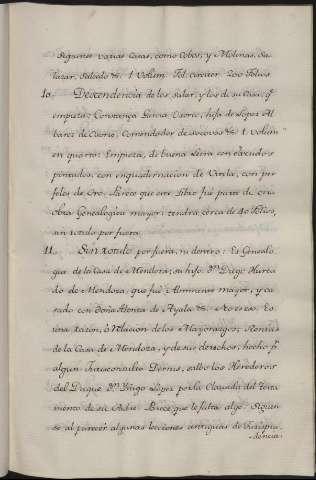 siguense varias Casas, como Cobos, y Molinas, Sa-
lazar, Salcedo &c. 1 Volum. Fol. circiter 200 folios
10. Descendencia de los Salar, y los de su Casa, q.e
empieza: Constanza Garcia Osorio, hija de Lopez Al
barez de Osorio, Comendador de Socovos &c. 1 Volum
en quarto: Empieza, de buena Letra con escudos
pintados, con enquadernacion de Vitela, con per
files de Oro. Parece que este Libro fue parte de otra
obra Genealogica mayor: tendrá cerca de 40 folios,
sin rotulo por fuera.
11. Sin rotulo por fuera, ni dentro: Es Genealo-
gia de la Casa de Mendoza; su hijo D.n Diego Hurta
do de Mendoza, que fue Almirante mayor, y ca
sado con Doña Maria de Ayala &c. Es
una razon, ò relacion de los Mayorazgos, Rentas
de la Casa de Mendoza, y de sus derechos, hecho p.r
algun Jurisconsulto
del Duque D.n Yñigo Lopez por la Clausula del testa
mento de su Padre. Parece que le falta algo. Siguen
se al parecer algunas lecciones antiguas de Jurispru
dencia.